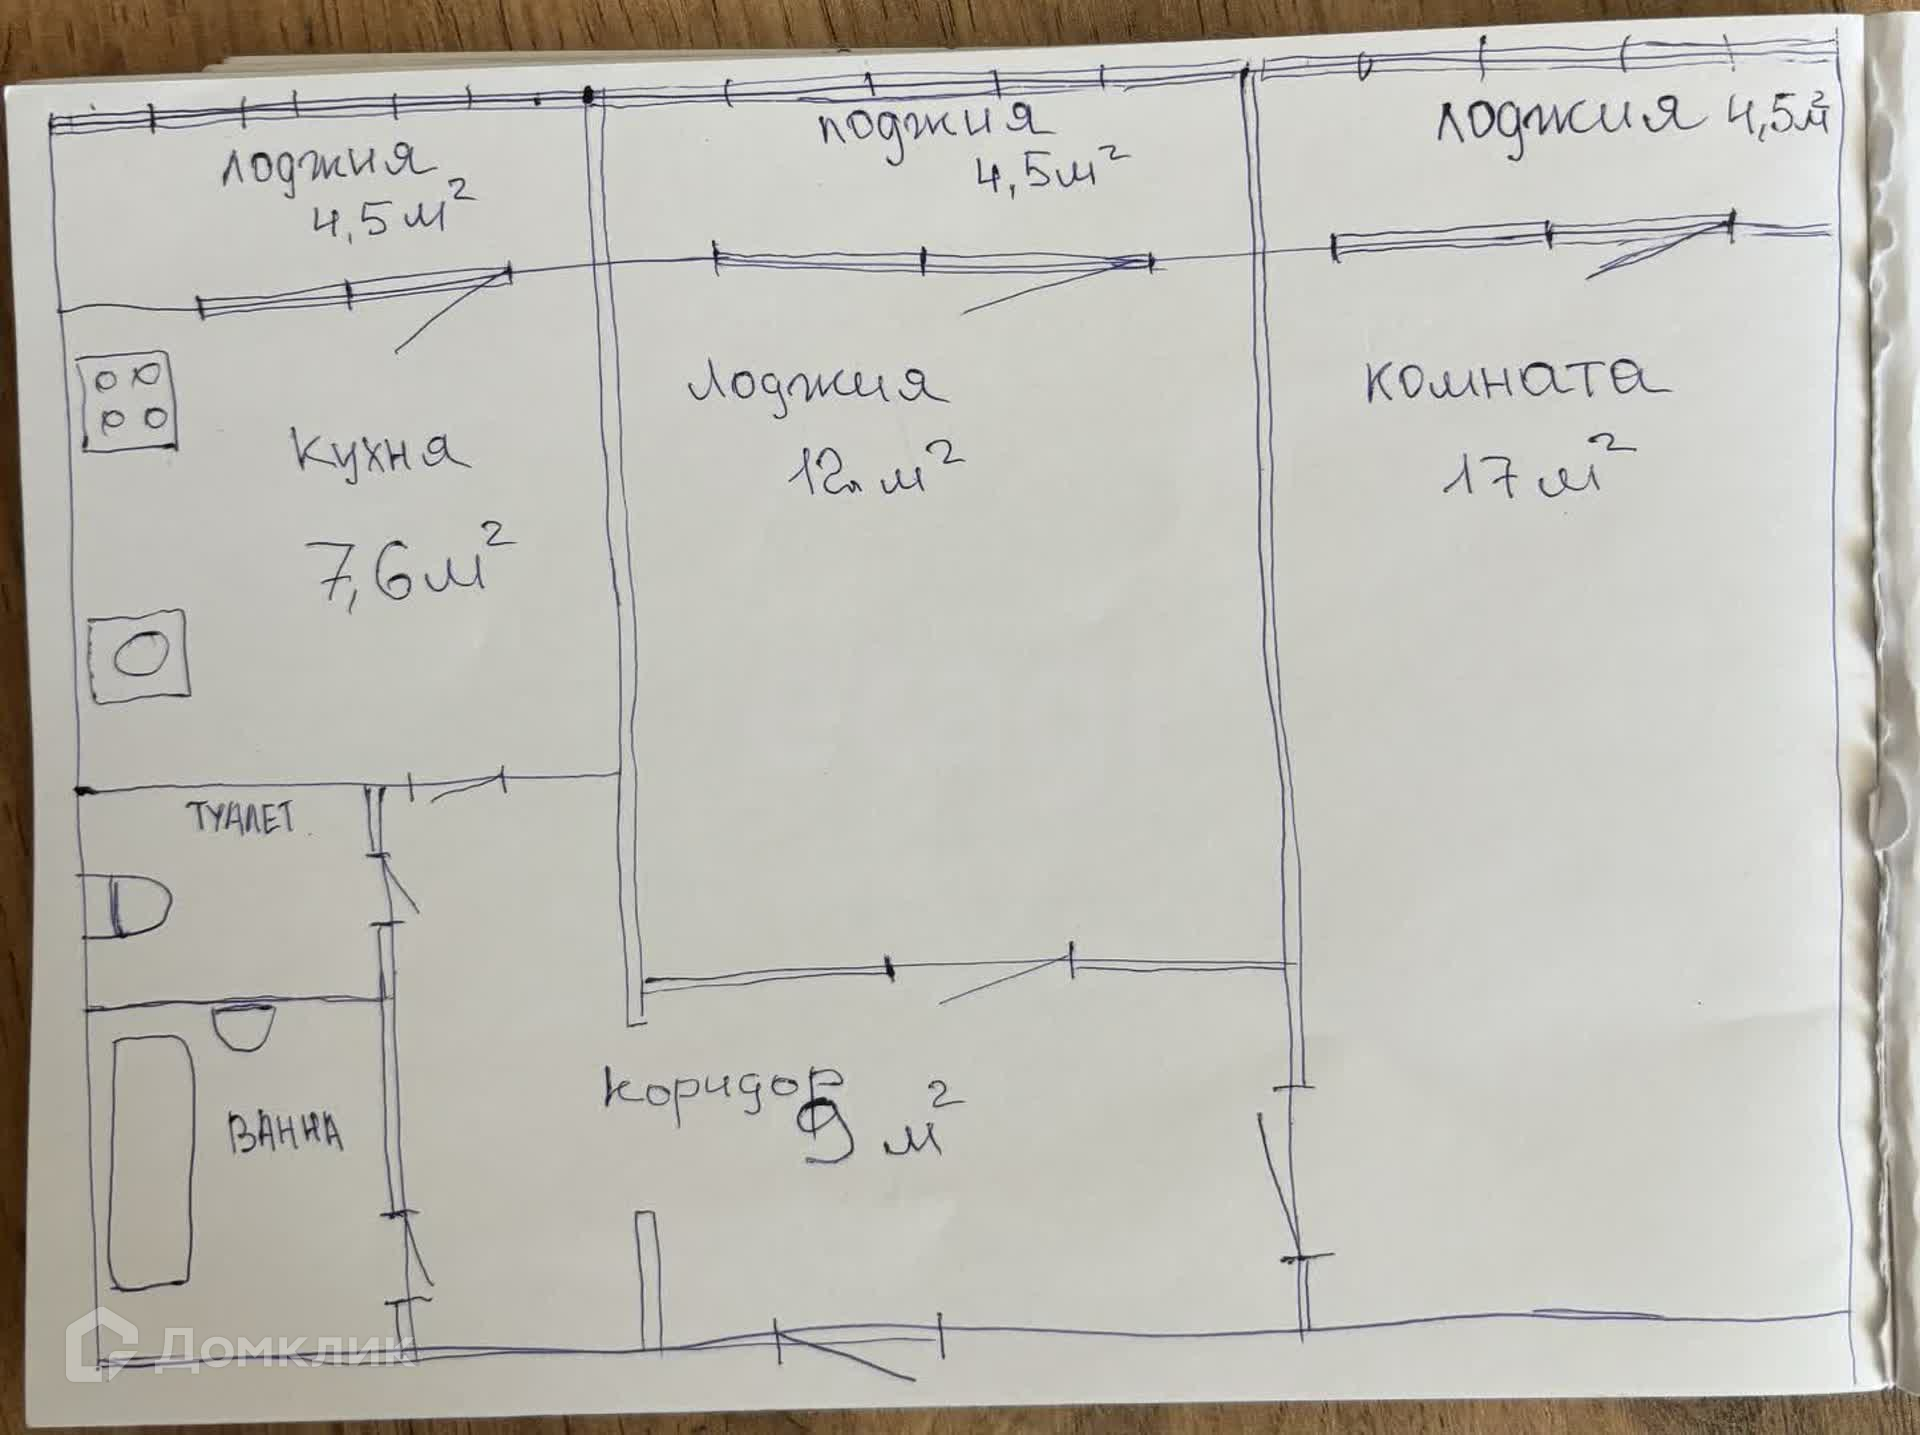 лоджия
4,5м²
лоджия
4,5м²
лоджия 4,5м²
кухня
7,6м²
лоджия
12м²
комната
17м²
ТУАЛЕТ
ВАННА
коридор
9 м²
Домклик